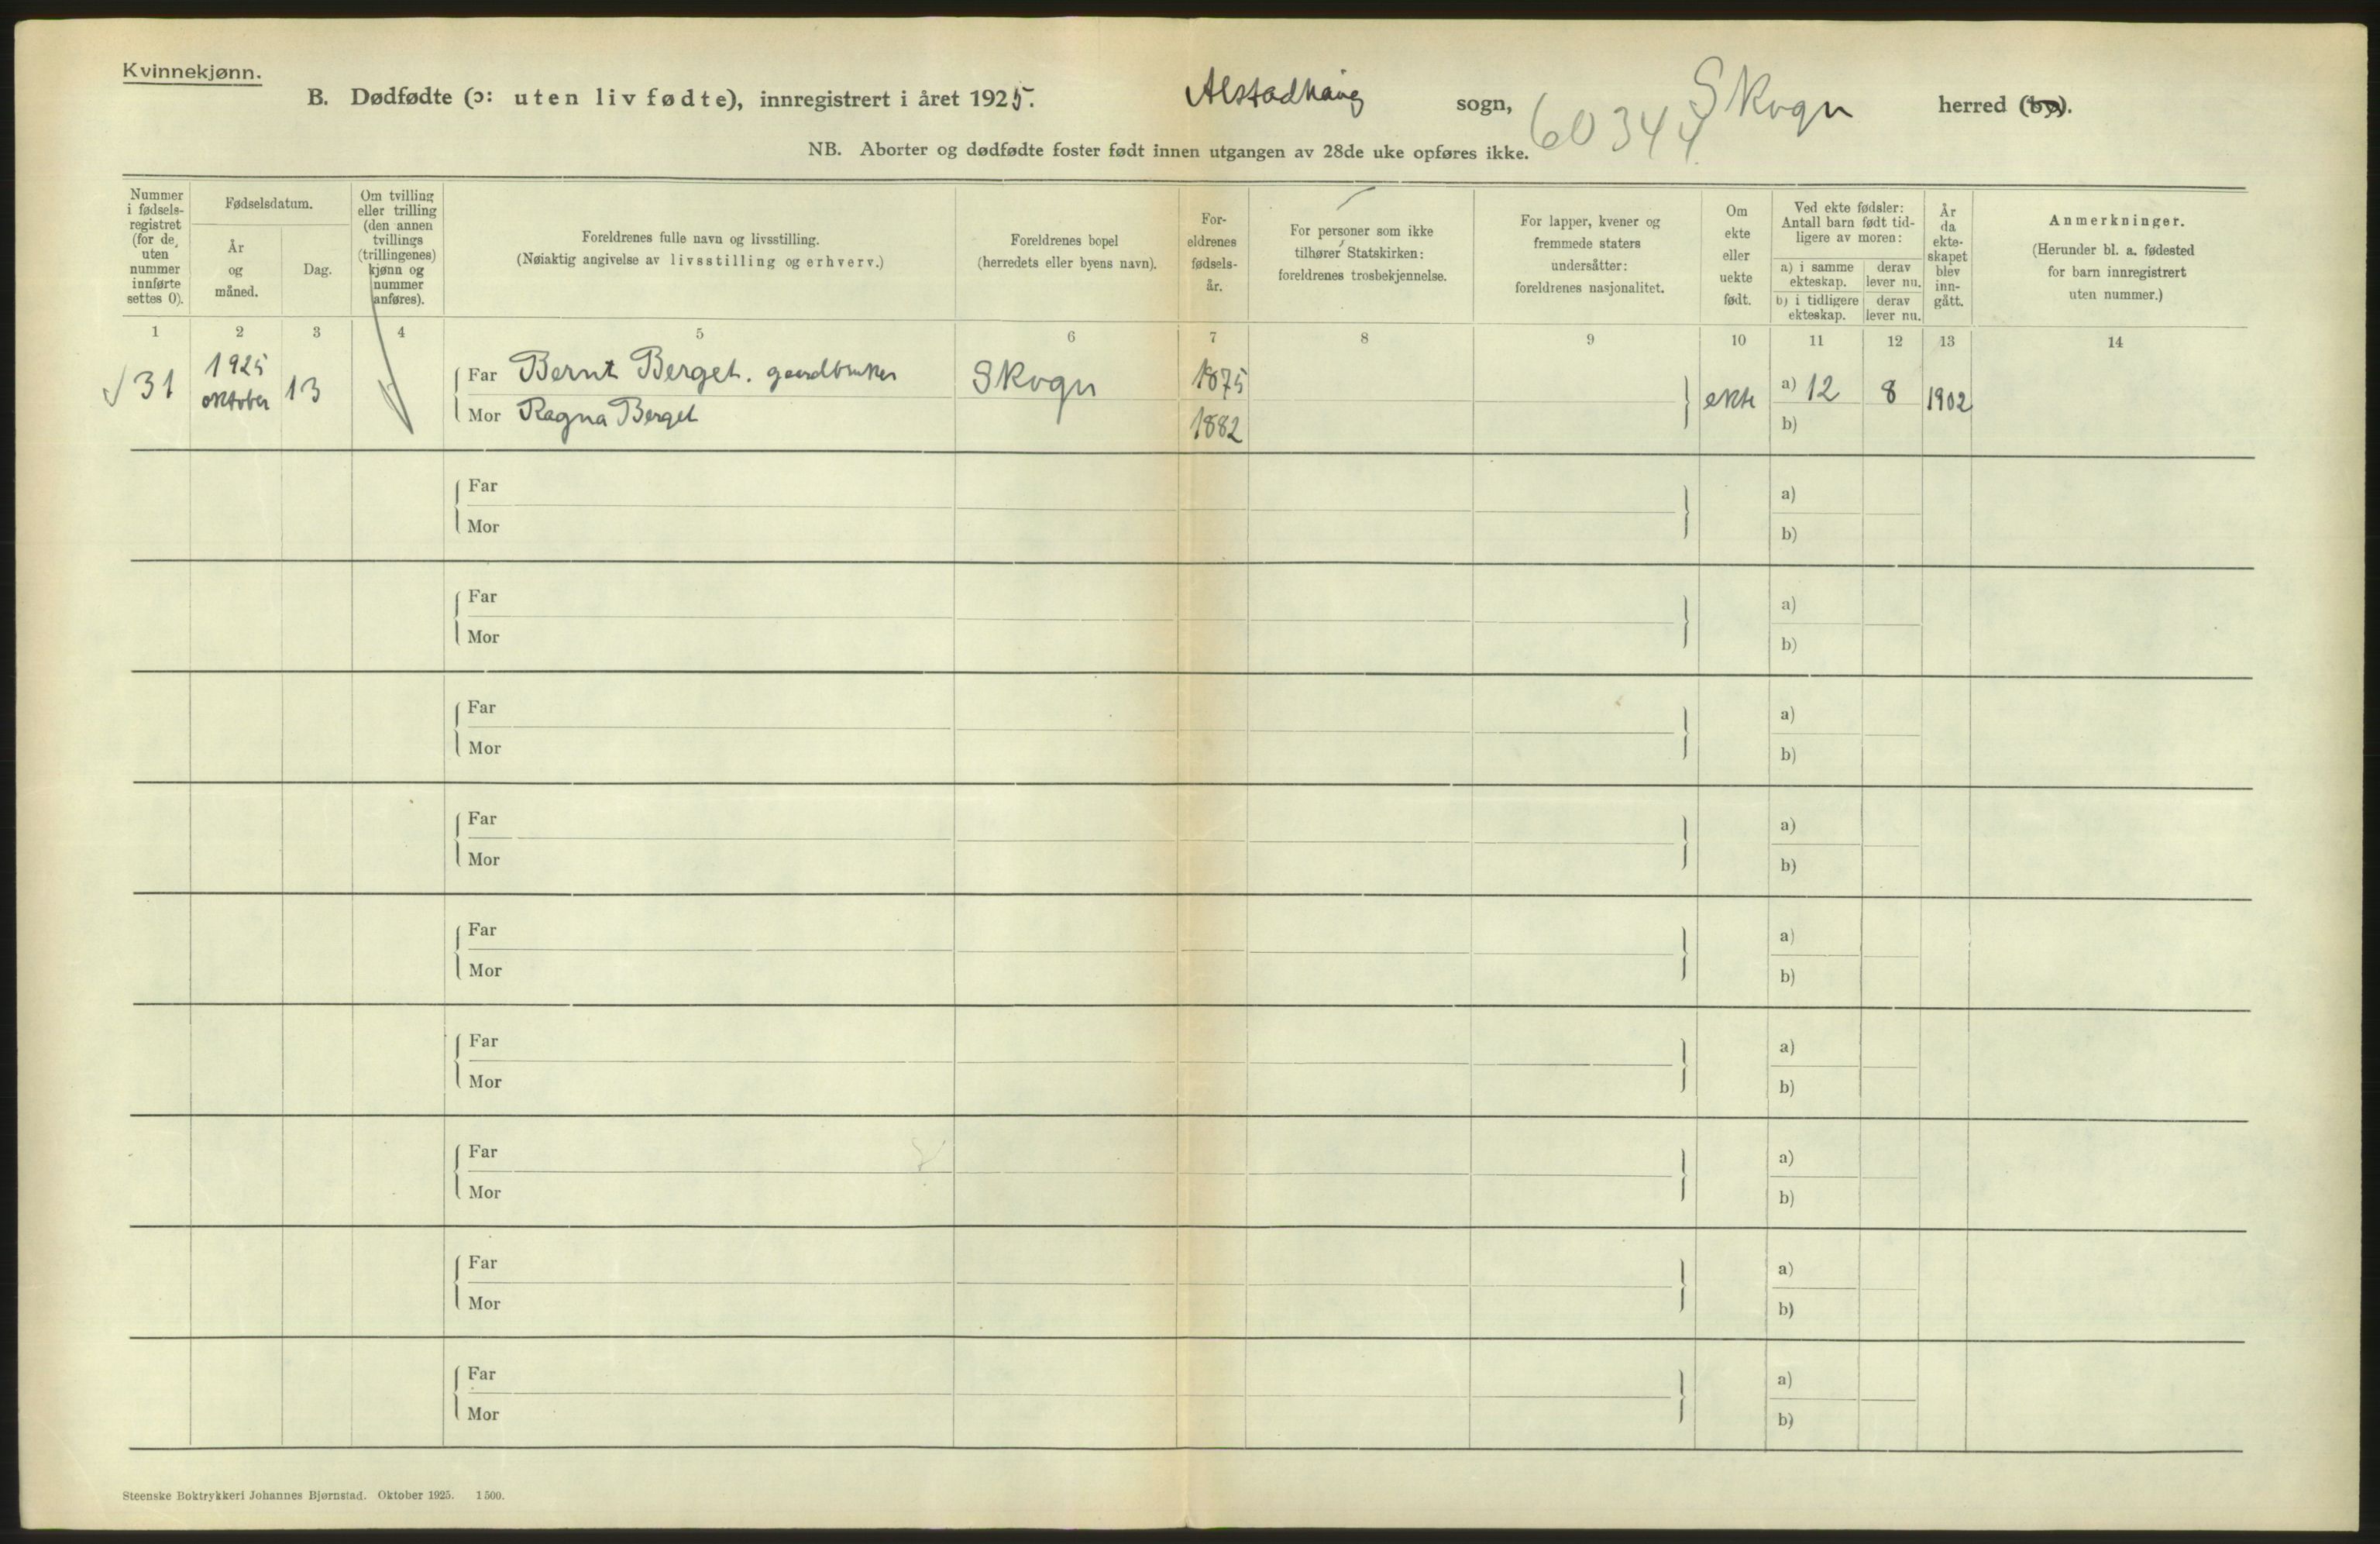 Kvinnekjønn.
B. Dødfødte (ɔ: uten liv fødte), innregistrert i året 1925. Alstadhaug sogn, Skogn herred (by).
60344
NB. Aborter og dødfødte foster født innen utgangen av 28de uke opføres ikke.
Nummer
i fødsels-
registret
(for de
uten
nummer
innførte
settes 0).
Fødselsdatum.
År
og
måned.
Dag.
Om tvilling
eller trilling
(den annen
tvillings
(trillingenes)
kjønn og
nummer
anføres).
Foreldrenes fulle navn og livsstilling.
(Nøiaktig angivelse av livsstilling og erhverv.)
Foreldrenes bopel
(herredets eller byens navn).
For-
eldrenes
fødsels-
år.
For personer som ikke
tilhører Statskirken:
foreldrenes trosbekjennelse.
For lapper, kvener og
fremmede staters
undersåtter:
foreldrenes nasjonalitet.
Om
ekte
eller
uekte
født.
Ved ekte fødsler:
Antall barn født tid-
ligere av moren:
a) i samme
ekteskap.
derav
lever nu.
b) i tidligere
ekteskap.
derav
lever nu.
År
da
ekte-
skapet
blev
inn-
gått.
Anmerkninger.
(Herunder bl. a. fødested
for barn innregistrert
uten nummer.)
1 2 3 4 5 6 7 8 9 10 11 12 13 14
31 1925 oktober 13
Far Bernt Berget. gaardbruker Skogn 1875 ekte a) 12 8 1902
Mor Ragna Berget 1882 b)
Far a)
Mor b)
Far a)
Mor b)
Far a)
Mor b)
Far a)
Mor b)
Far a)
Mor b)
Far a)
Mor b)
Far a)
Mor b)
Far a)
Mor b)
Far a)
Mor b)
Steenske Boktrykkeri Johannes Bjørnstad. Oktober 1925. 1500.